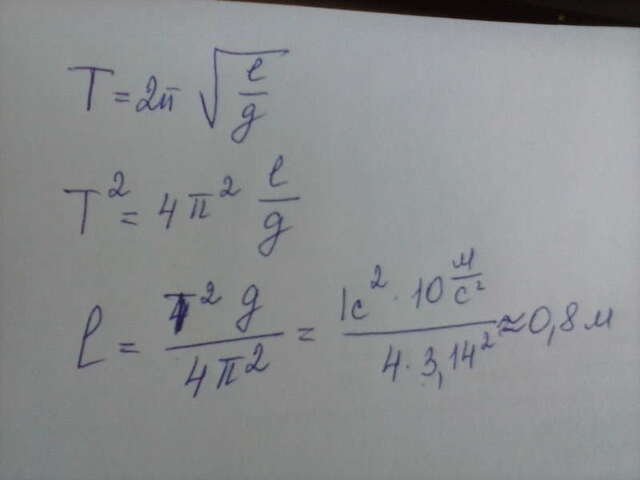 T = 2π √(l/g)
T² = 4π² l/g
l = T² g / 4π² = 1с² · 10 м/с² / 4 · 3,14² ≈ 0,8 м